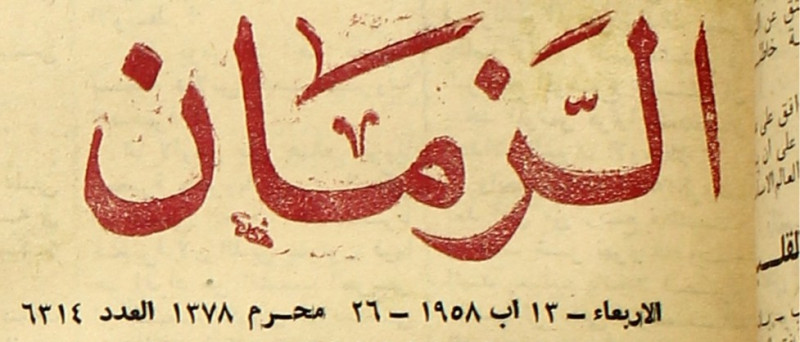 الزمان
الاربعاء – ١٣ اب ١٩٥٨ – ٢٦ محرم ١٣٧٨ العدد ٦٣١٤